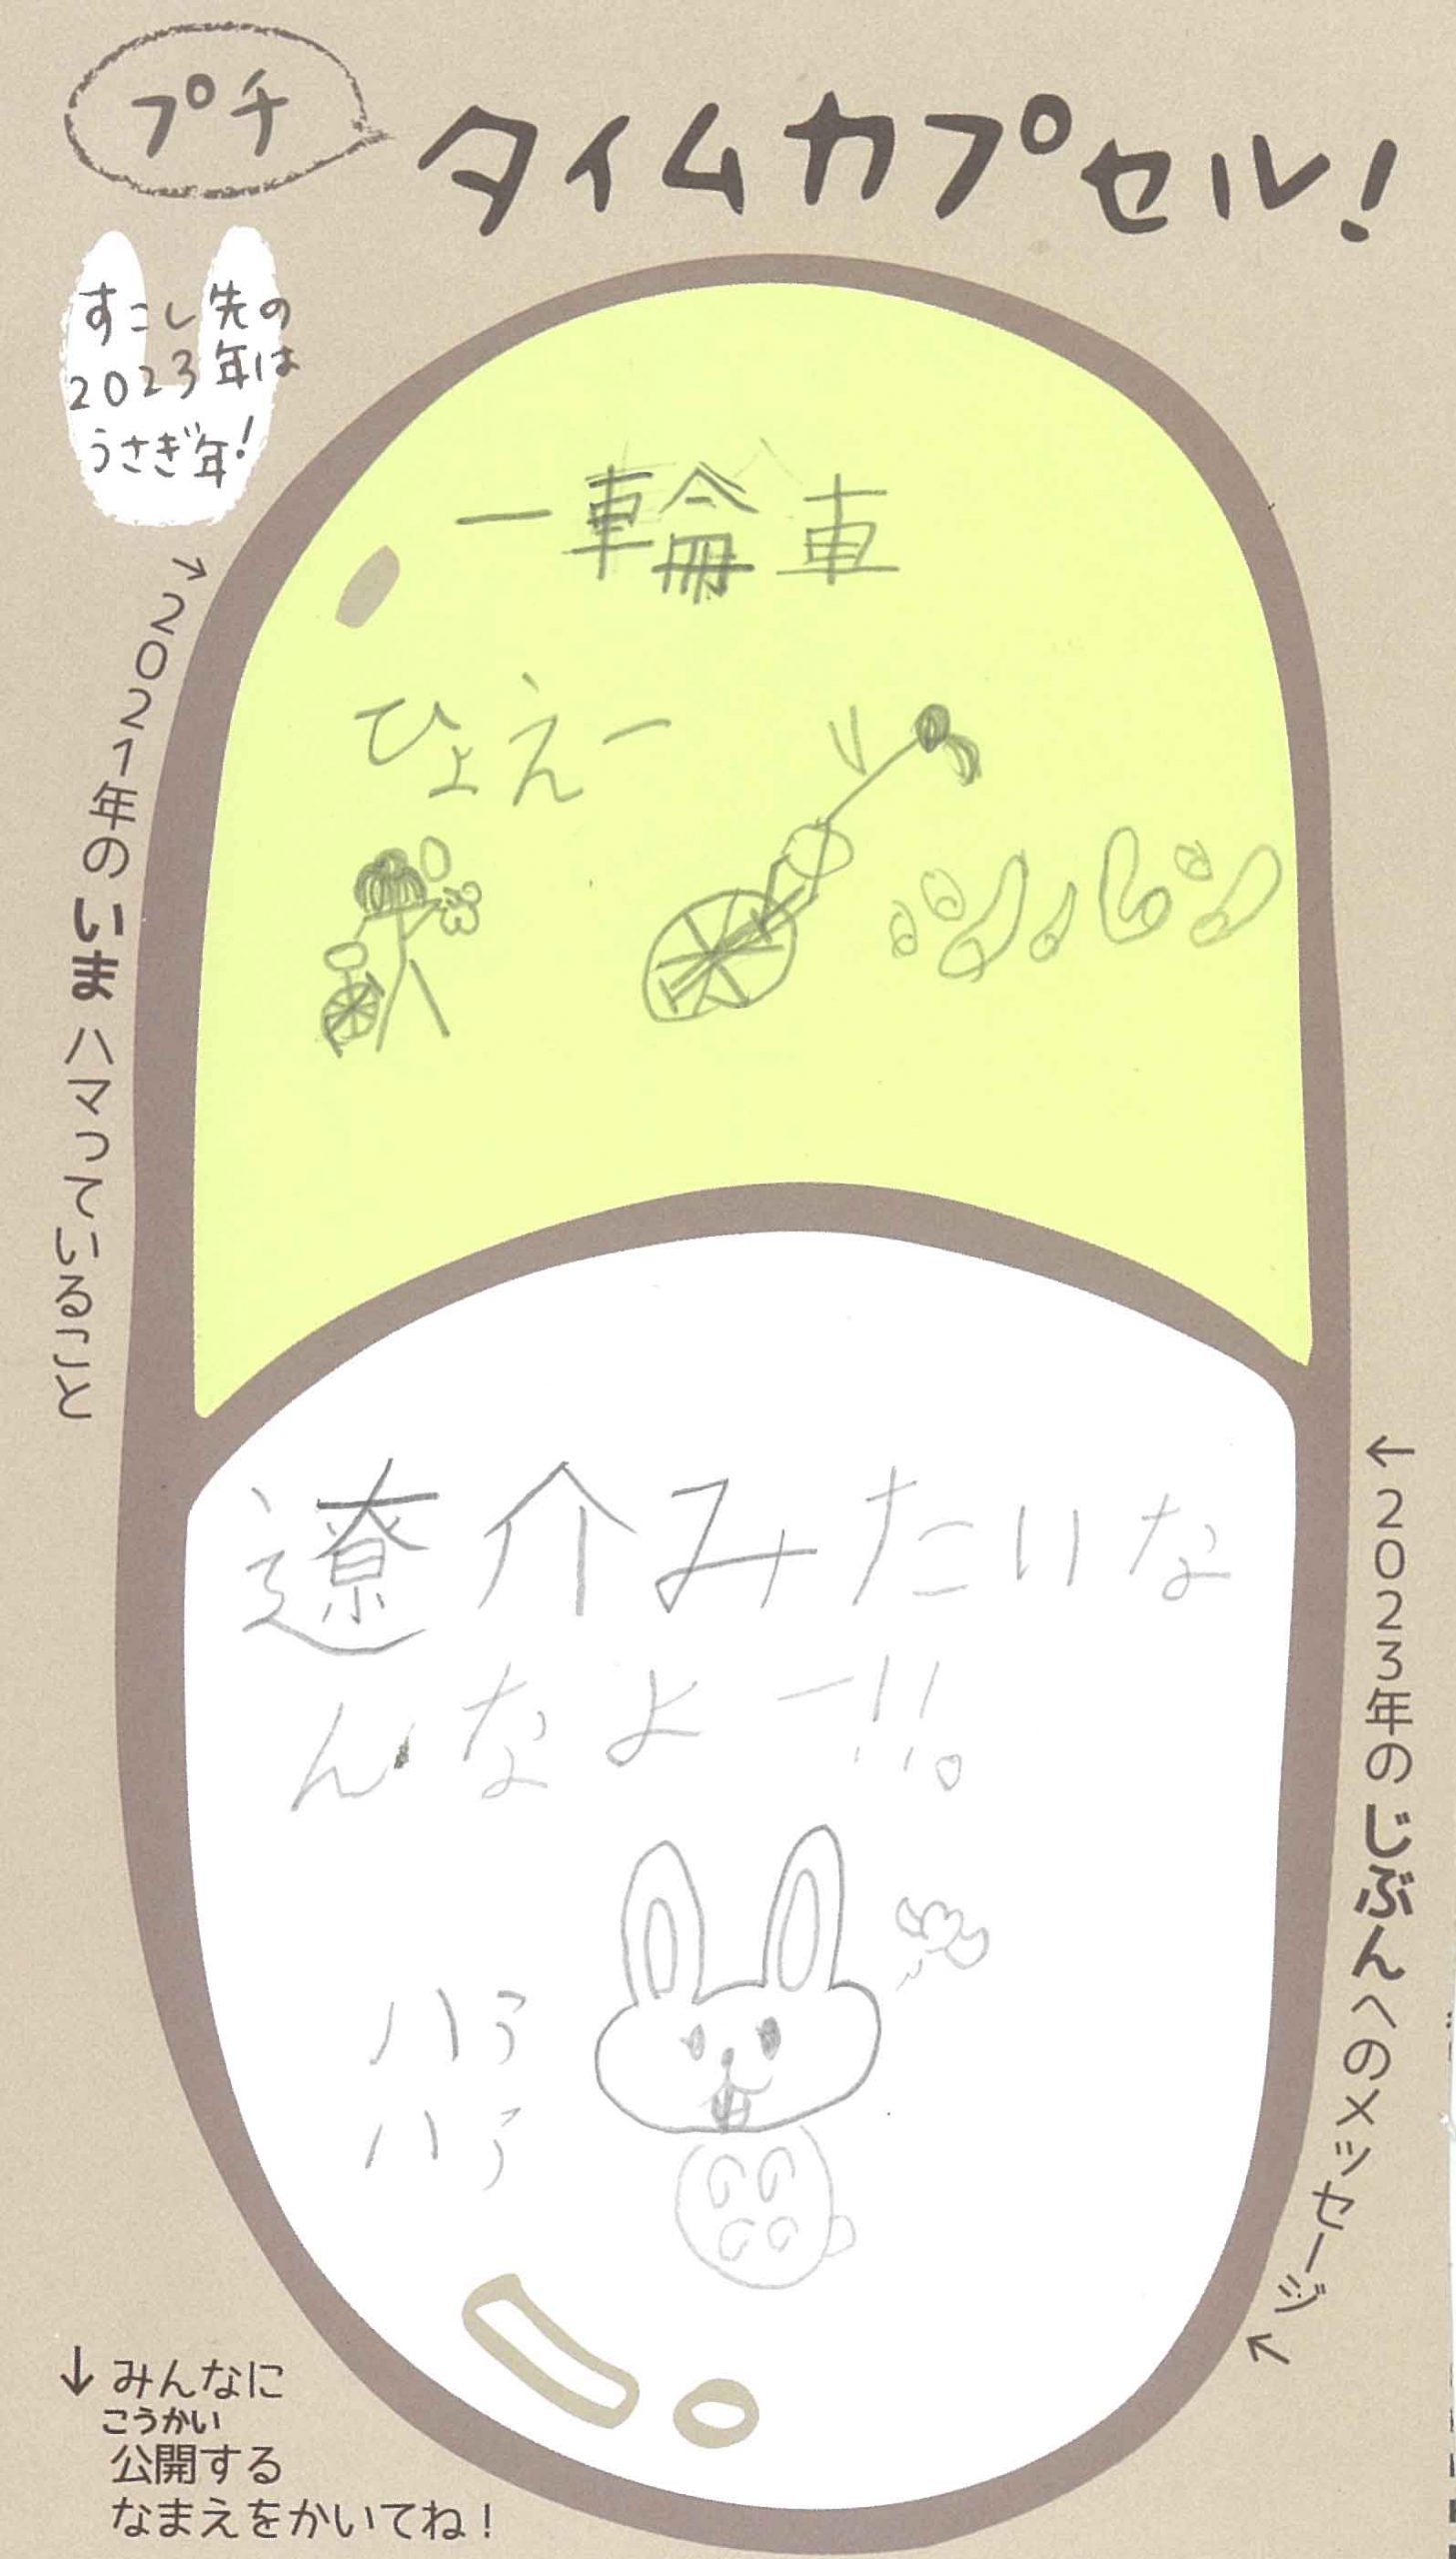 プチ
タイムカプセル!
すこし先の
2023年は
うさぎ年!
→2021年のいまハマっていること
一輪車
ひょえー
遼介みたいな
んなよー!!。
ハァ
ハァ
←2023年のじぶんへのメッセージ
↓みんなに
こうかい
公開する
なまえをかいてね!